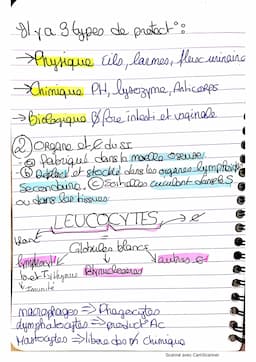 Il y a 3 types de protect°:
→ Physique cils, larmes, flux urinaire
→ Chimique PH, lysozyme, Anticorps
→ Biologique flore intesti et vaginale
② Organe et ¢ du SI
ⓐ Fabriqué dans la moelle osseuse
ⓑ et stocké dans les organes lymphoïdes
Secondaire. ⓒ circulent dans le S
ou dans les tissus
LEUCOCYTES →
Globules blancs
lymphocyte Polynucléaires autres ¢
Immunité
macrophages ⇒ Phagocytes
lymphatocytes ⇒ product° Ac
Mastocytes ⇒ libère des chimique
Scanné avec CamScanner